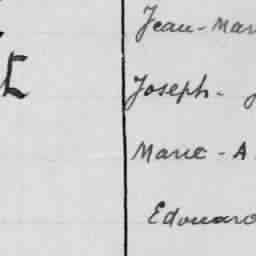 Jean-Mar
Joseph-
Marie-A
Edouard